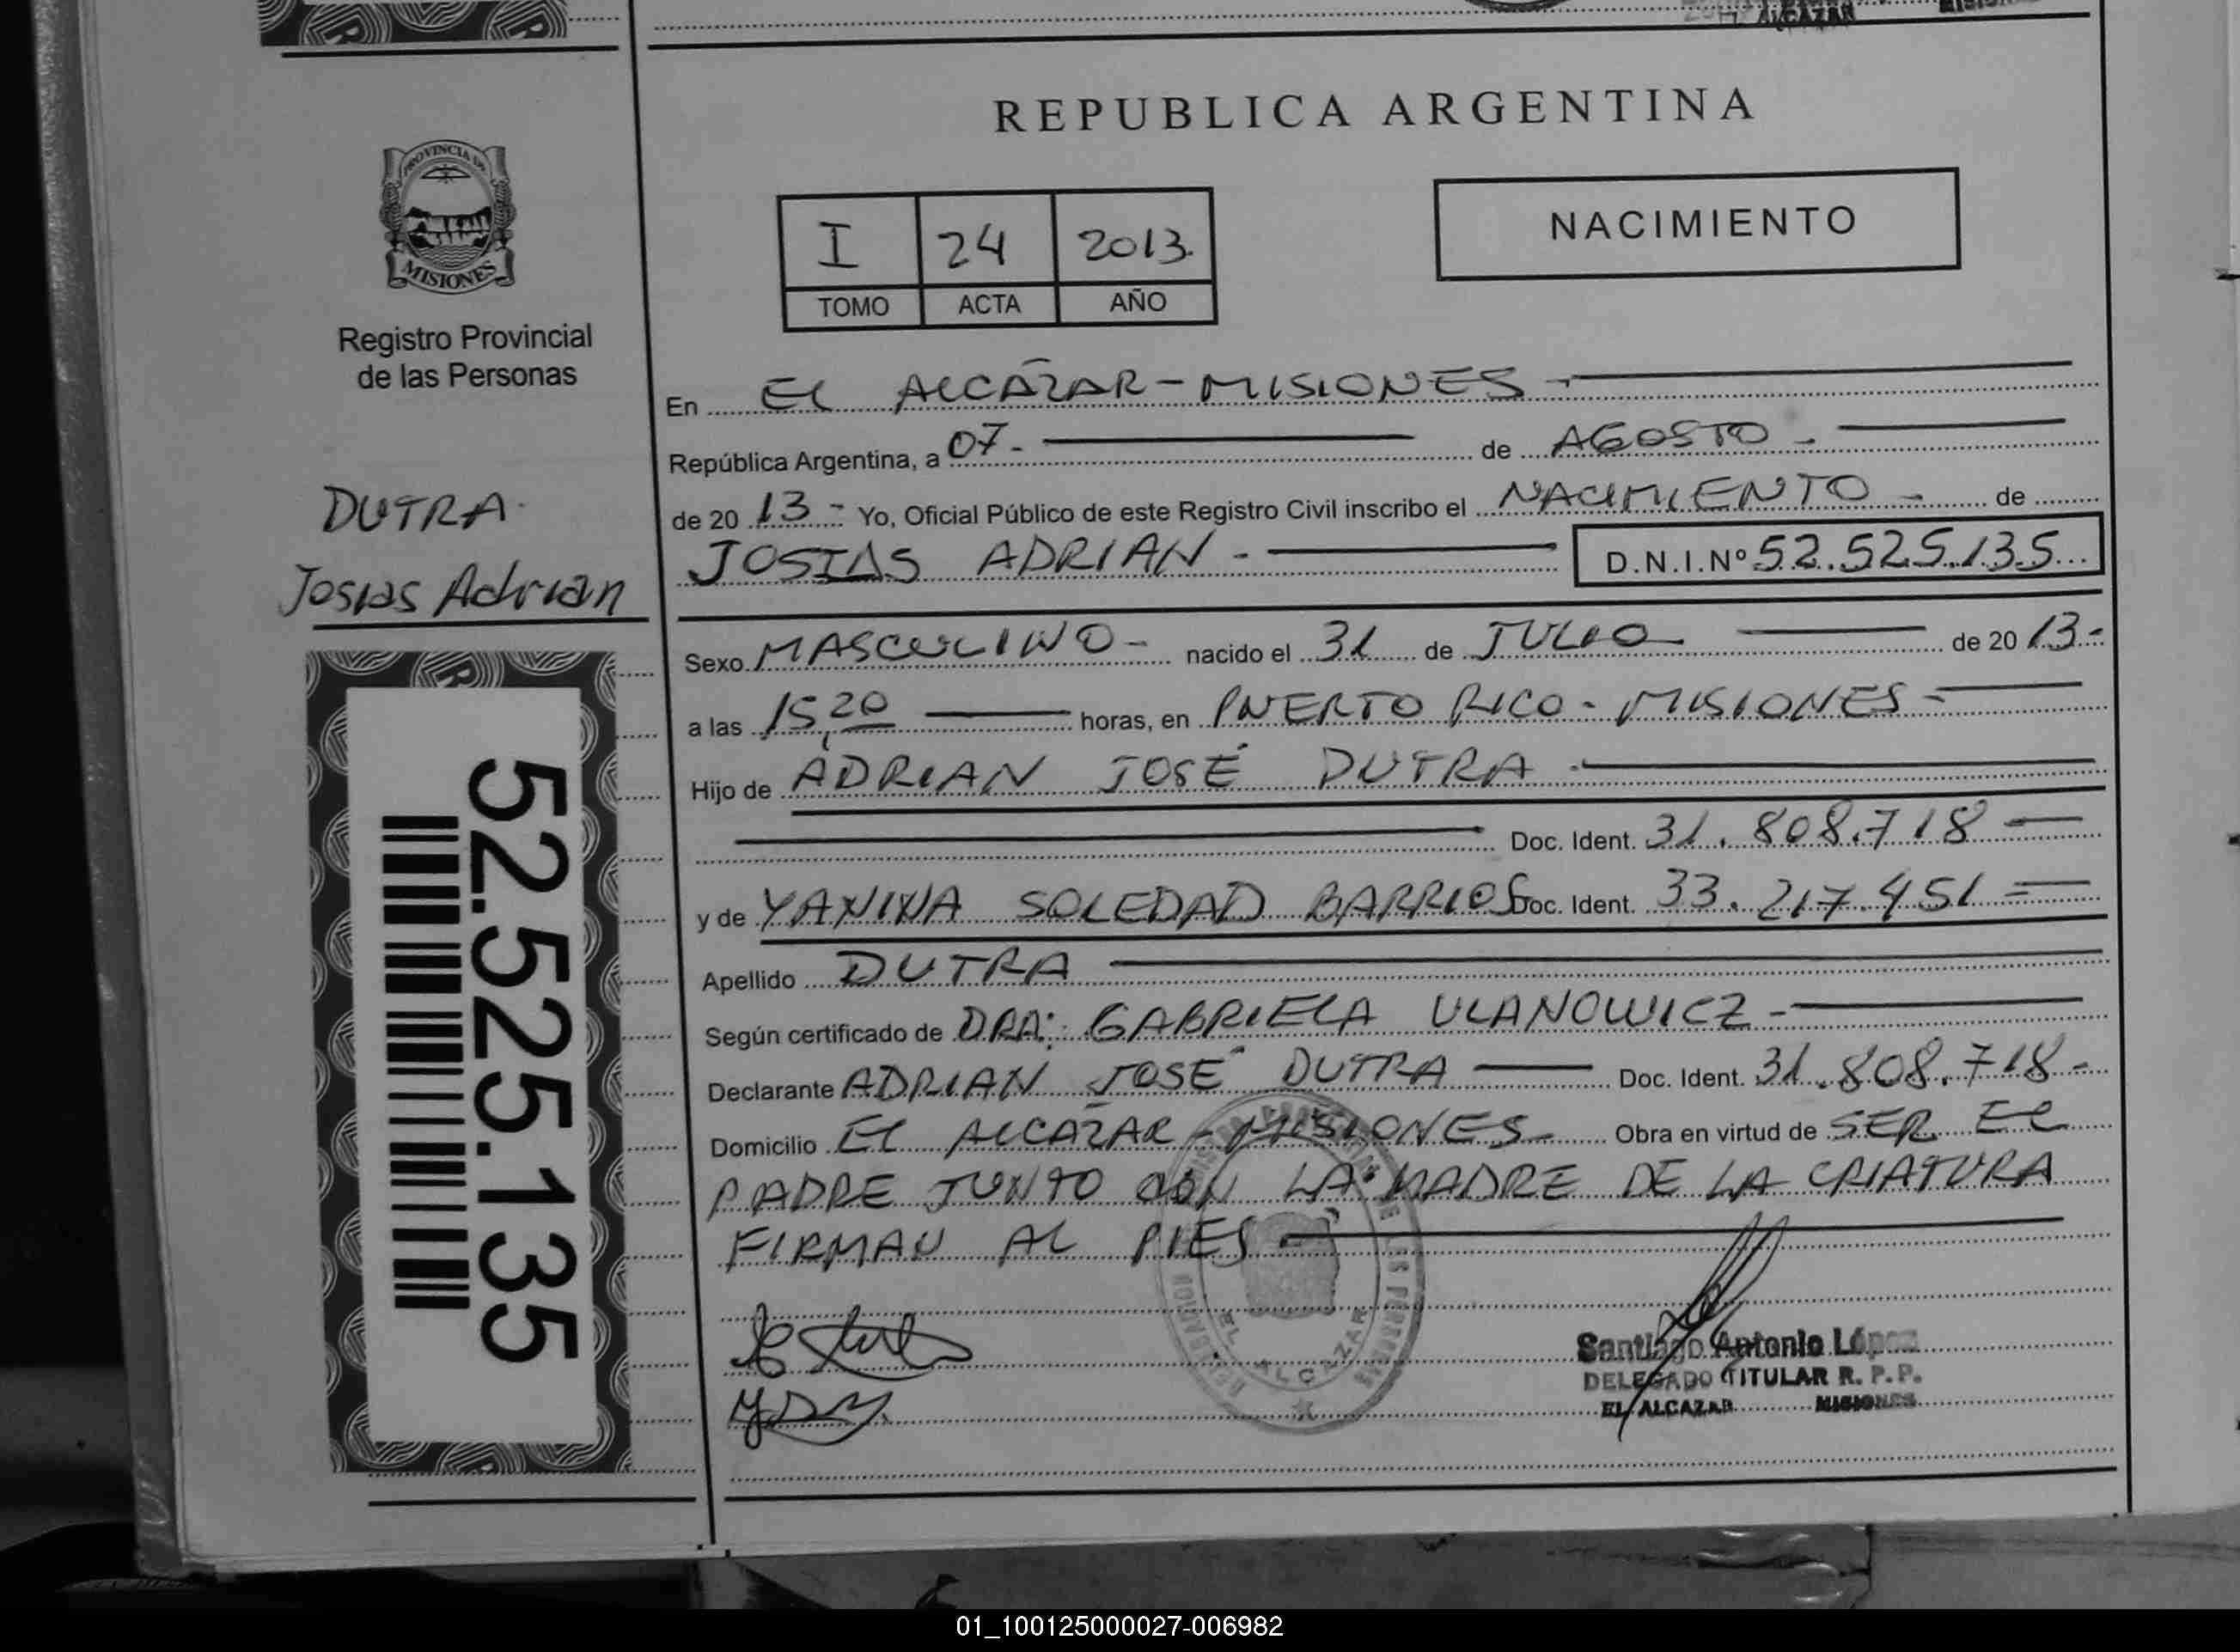 EL ALCAZAR
REPUBLICA ARGENTINA
PROVINCIA DE
MISIONES
Registro Provincial
de las Personas
I 24 2013.
TOMO ACTA AÑO
NACIMIENTO
En EL ALCÁZAR - MISIONES -
República Argentina, a 07 - de AGOSTO -
de 20 13 - Yo, Oficial Público de este Registro Civil inscribo el NACIMIENTO - de
JOSIAS ADRIAN - D.N.I.Nº 52.525.135
DUTRA
Josias Adrian
52.525.135
Sexo MASCULINO - nacido el 31 de JULIO de 20 13 -
a las 15,20 horas, en PUERTO RICO - MISIONES -
Hijo de ADRIAN JOSÉ DUTRA -
Doc. Ident. 31.808.718
y de YANINA SOLEDAD BARRIOS Doc. Ident. 33.217.451
Apellido DUTRA
Según certificado de DRA: GABRIELA ULANOWICZ -
Declarante ADRIAN JOSÉ DUTRA Doc. Ident. 31.808.718 -
Domicilio EL ALCAZAR - MISIONES - Obra en virtud de SER EL
PADRE JUNTO CON LA MADRE DE LA CRIATURA
FIRMAN AL PIES
EL ALCAZAR
Santiago Antonio López
DELEGADO TITULAR R. P. P.
EL ALCAZAR MISIONES
01_100125000027-006982